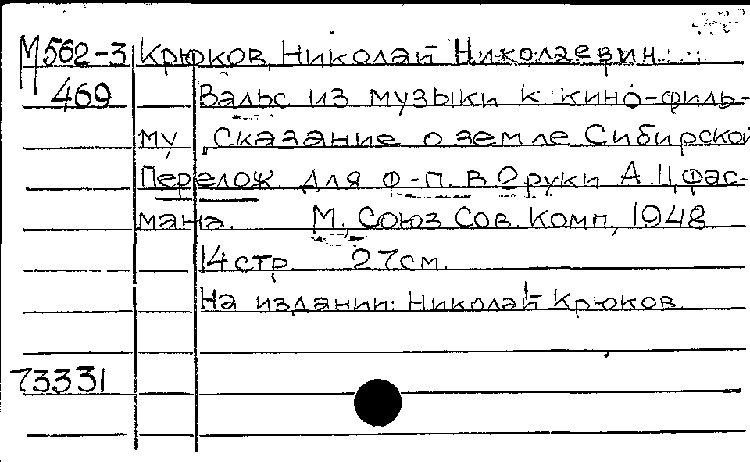 М562-3 Крюков, Николай Николаевич
469 Вальс из музыки к кино-филь-
му „Сказание о земле Сибирской
Перелож для ф-п. в 2 руки А. Цфас-
мана. М., Союз Сов. Комп., 1948
14 стр 27см.
На издании: Николай Крюков.
73331